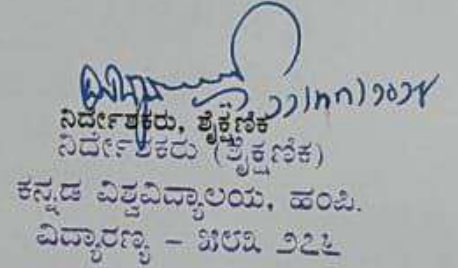 ನಿರ್ದೇಶಕರು, ಶೈಕ್ಷಣಿಕ
ನಿರ್ದೇಶಕರು (ಶೈಕ್ಷಣಿಕ)
ಕನ್ನಡ ವಿಶ್ವವಿದ್ಯಾಲಯ, ಹಂಪಿ.
ವಿದ್ಯಾರಣ್ಯ – ೫೮೩ ೨೭೬